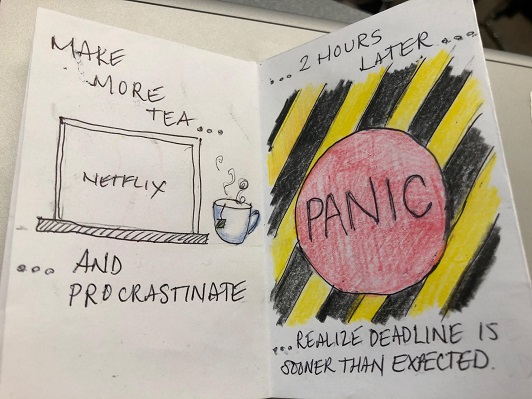 MAKE
MORE
TEA...
NETFLIX
... AND
PROCRASTINATE
... 2 HOURS
LATER ...
PANIC
...REALIZE DEADLINE IS
SOONER THAN EXPECTED.